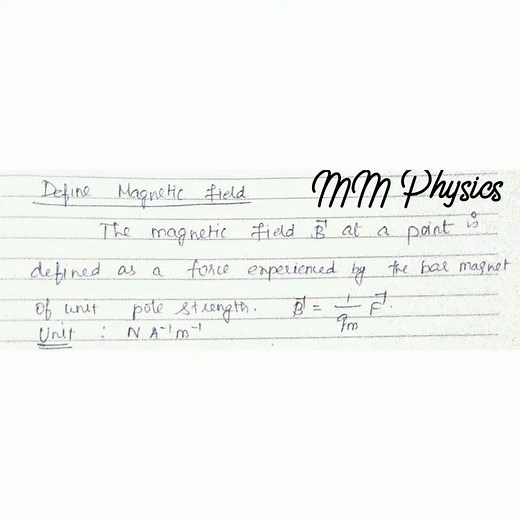 Define Magnetic field
MM Physics
The magnetic field B⃗ at a point is
defined as a force experienced by the bar magnet
of unit pole strength. B⃗ = 1/qm F⃗.
Unit : N A⁻¹ m⁻¹